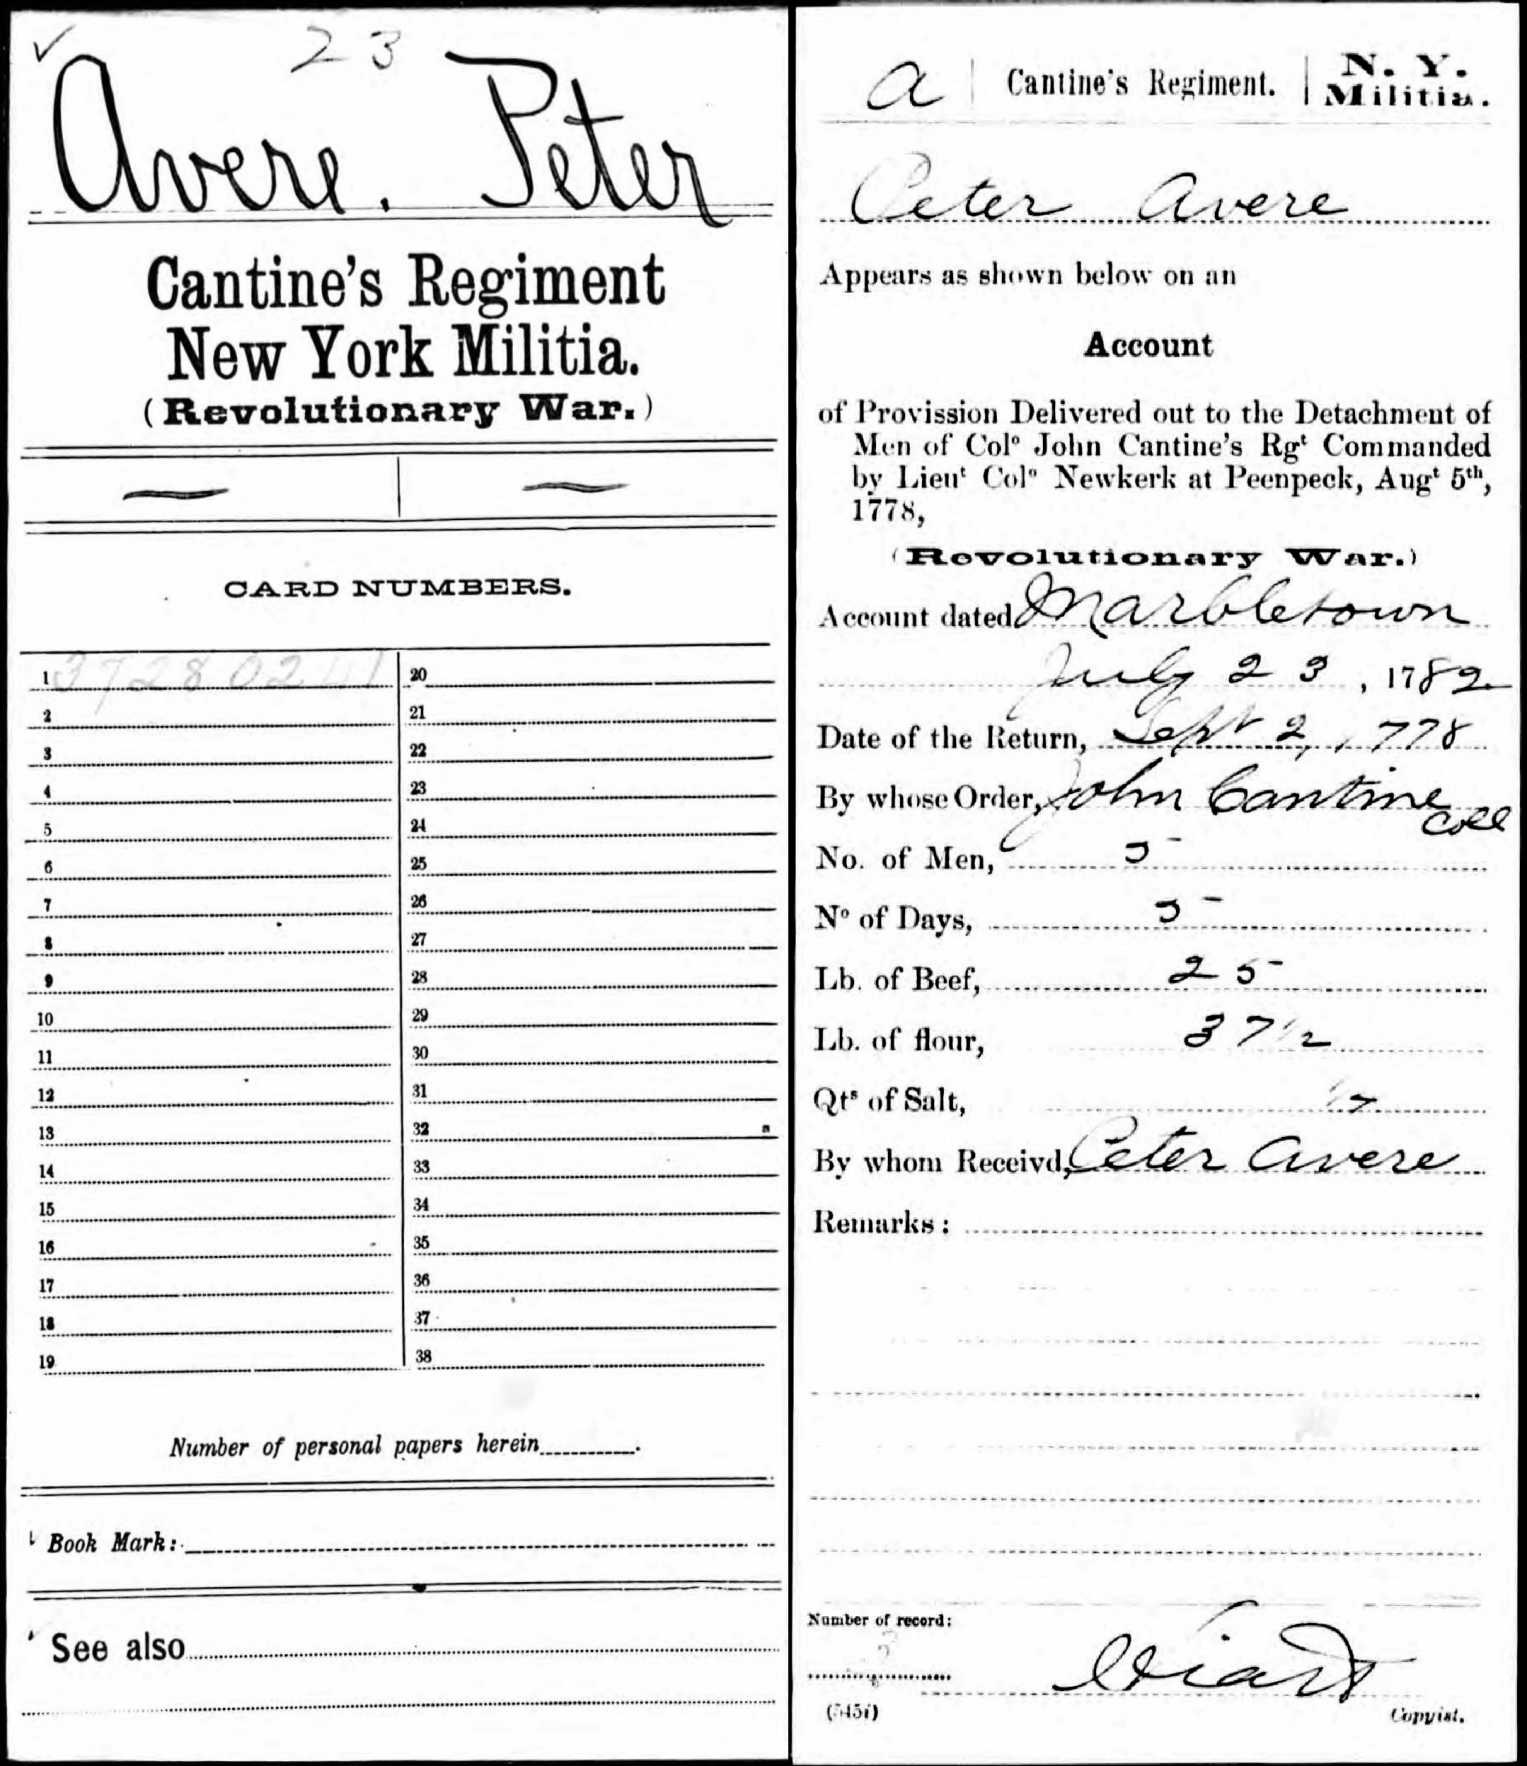 ✓ 23
Avere. Peter
Cantine's Regiment
New York Militia.
(Revolutionary War.)
CARD NUMBERS.
1 37280241 20
2 21
3 22
4 23
5 24
6 25
7 26
8 27
9 28
10 29
11 30
12 31
13 32
14 33
15 34
16 35
17 36
18 37
19 38
Number of personal papers herein
Book Mark:
See also
a | Cantine's Regiment. | N. Y. Militia.
Peter Avere
Appears as shown below on an
Account
of Provission Delivered out to the Detachment of
Men of Colº John Cantine's Rgᵗ Commanded
by Lieuᵗ Colº Newkerk at Peenpeck, Augᵗ 5ᵗʰ,
1778,
(Revolutionary War.)
Account dated Marbletown
July 23, 1782
Date of the Return, Sept 2, 1778
By whose Order, John Cantine
Coll
No. of Men, 5
Nº of Days, 5
Lb. of Beef, 25
Lb. of flour, 37 1/2
Qtˢ of Salt,
By whom Receivd, Peter Avere
Remarks:
Number of record:
(545i)
Copyist.